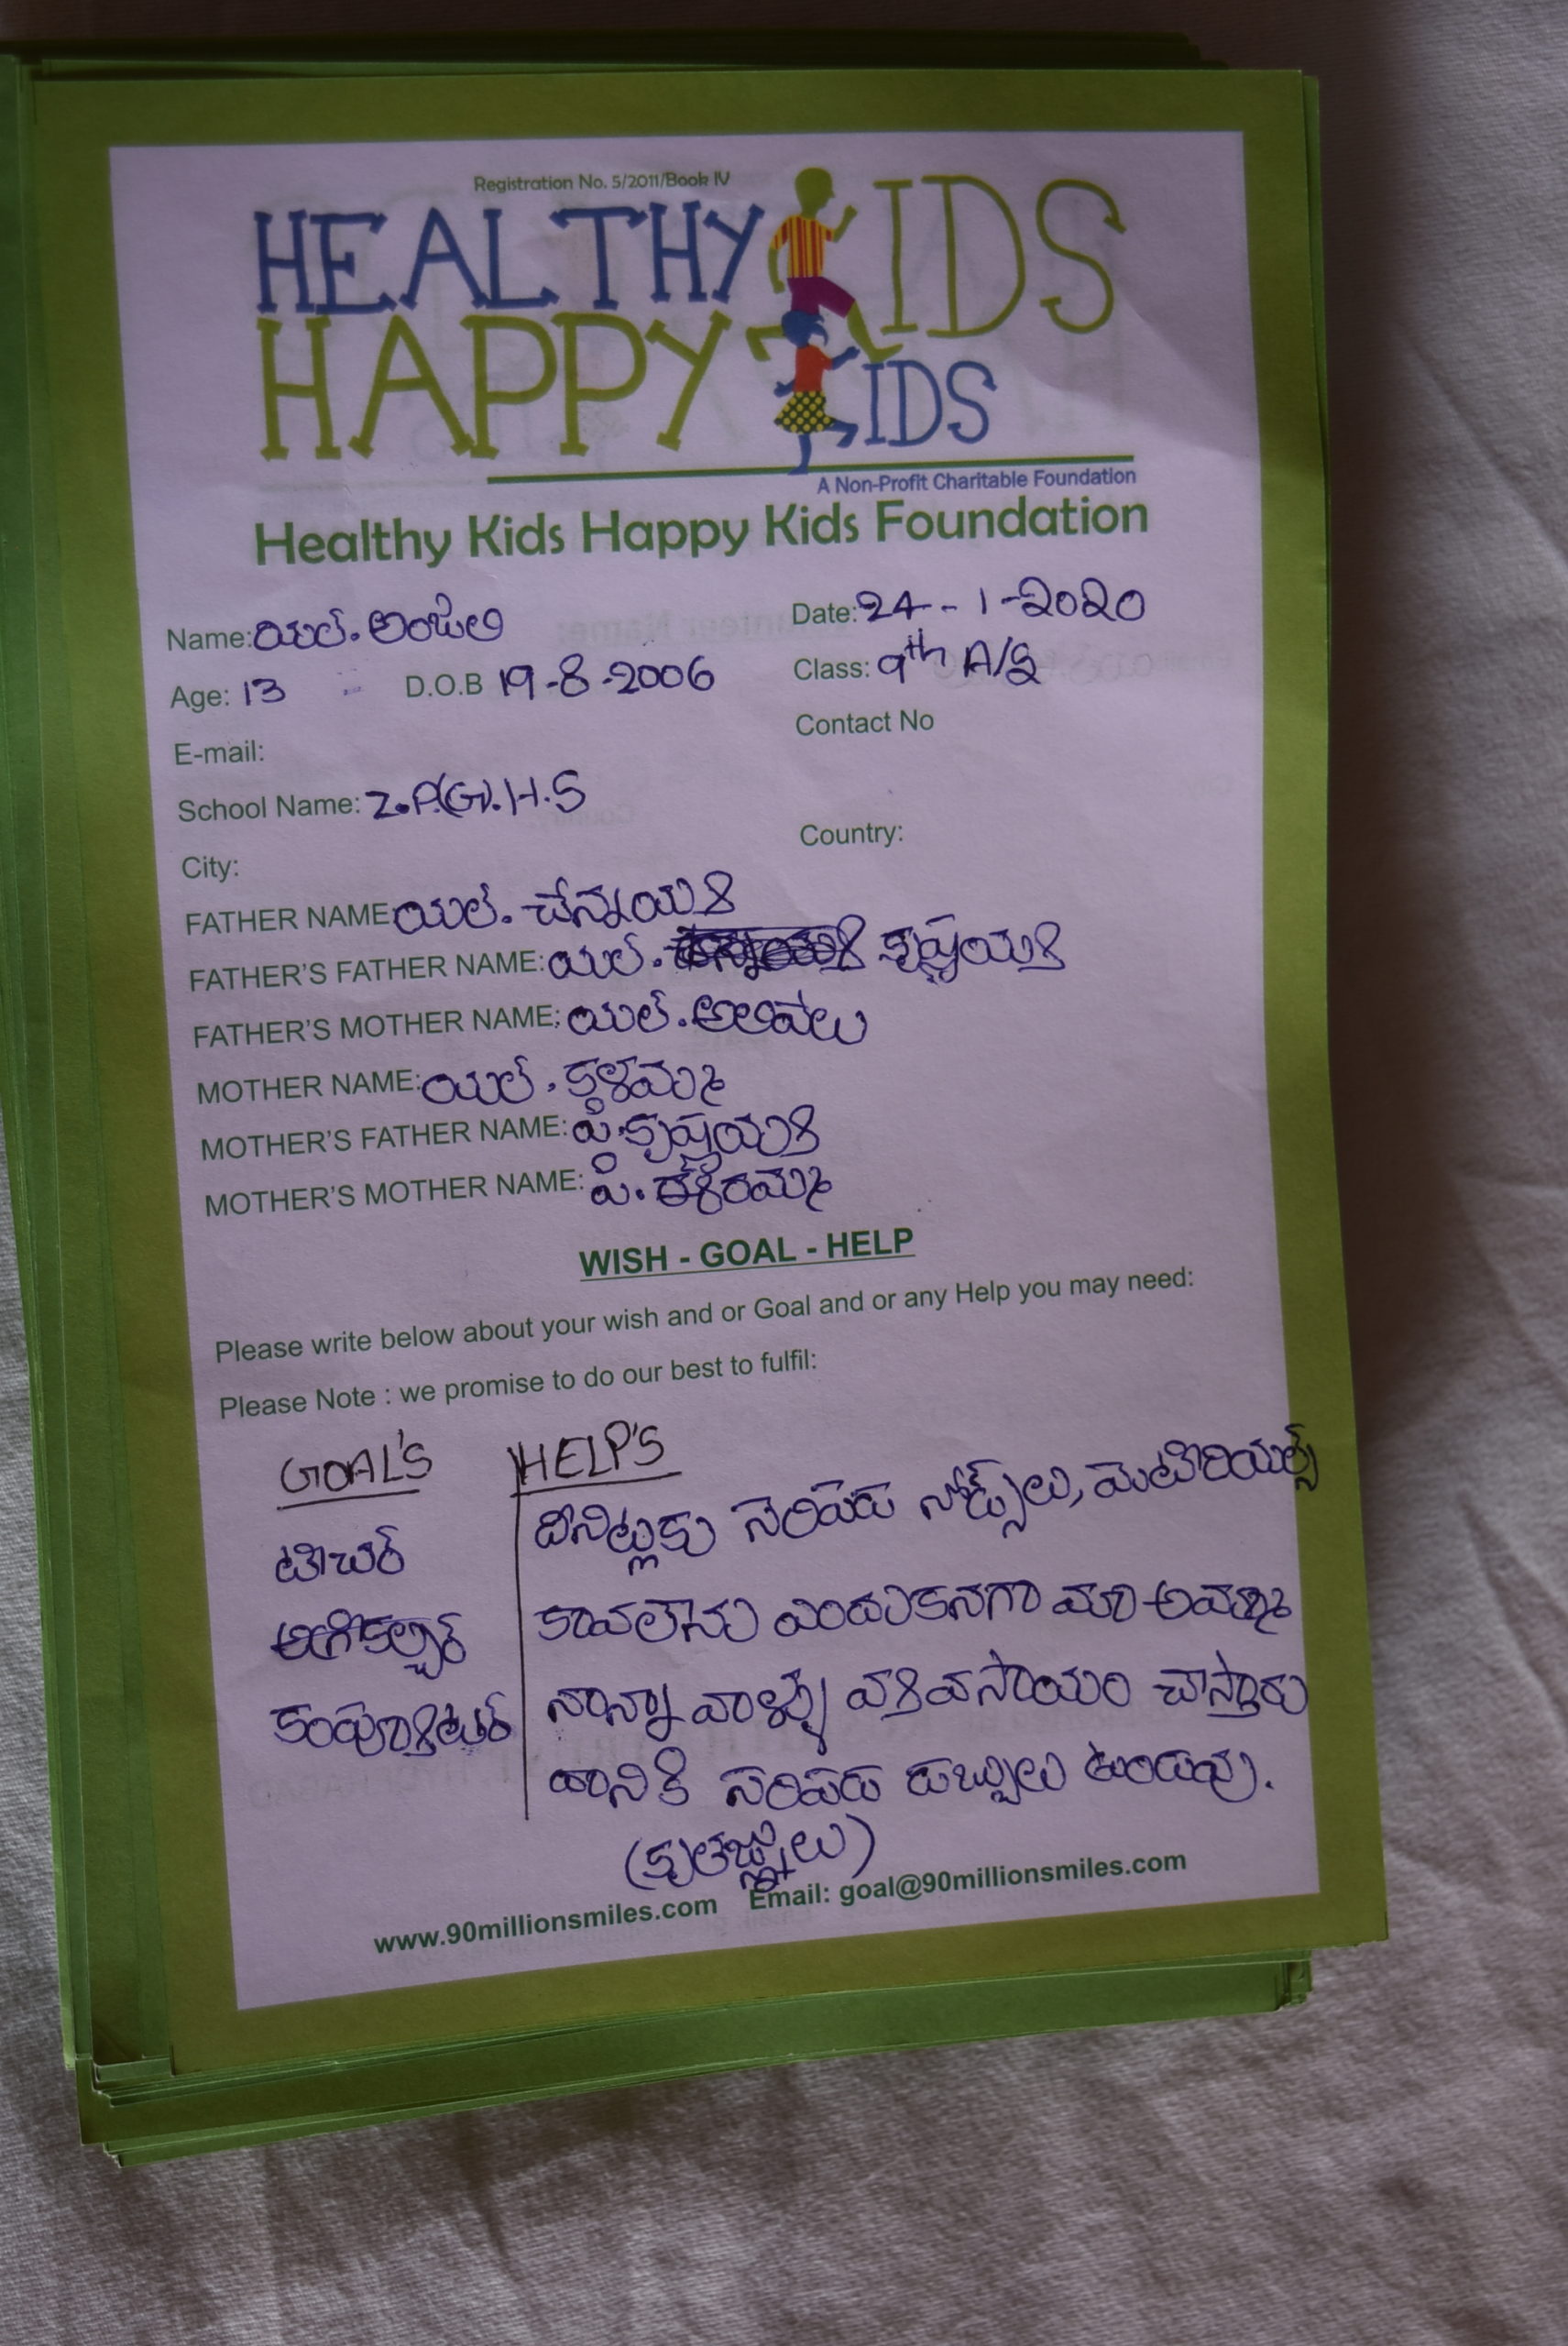 Registration No. 5/2011/Book IV
HEALTHY KIDS
HAPPY KIDS
A Non-Profit Charitable Foundation
Healthy Kids Happy Kids Foundation
Name: యల్. అంజలి Date: 24 - 1 - 2020
Age: 13 D.O.B 19-8-2006 Class: 9th A/S
E-mail: Contact No
School Name: Z.P.(G).H.S
City: Country:
FATHER NAME: యల్. చేన్నయ్య
FATHER'S FATHER NAME: యల్. కృష్ణయ్య
FATHER'S MOTHER NAME: యల్. అలివేలు
MOTHER NAME: యల్. కళమ్మ
MOTHER'S FATHER NAME: పి. కృష్ణయ్య
MOTHER'S MOTHER NAME: పి. ఈశ్వరమ్మ
WISH - GOAL - HELP
Please write below about your wish and or Goal and or any Help you may need:
Please Note : we promise to do our best to fulfil:
GOAL'S HELP'S
టీచర్ దీనిట్లకు సరిపడు నోట్స్‌లు, మెటిరియల్స్
అగ్రికల్చర్ కావలెను ఎందుకనగా మా అమ్మ
కంప్యూటర్ నాన్న వాళ్ళు వ్యవసాయం చేస్తారు
దానికి సరిపడు డబ్బులు ఉండవు.
(కృతజ్ఞులు)
www.90millionsmiles.com Email: goal@90millionsmiles.com